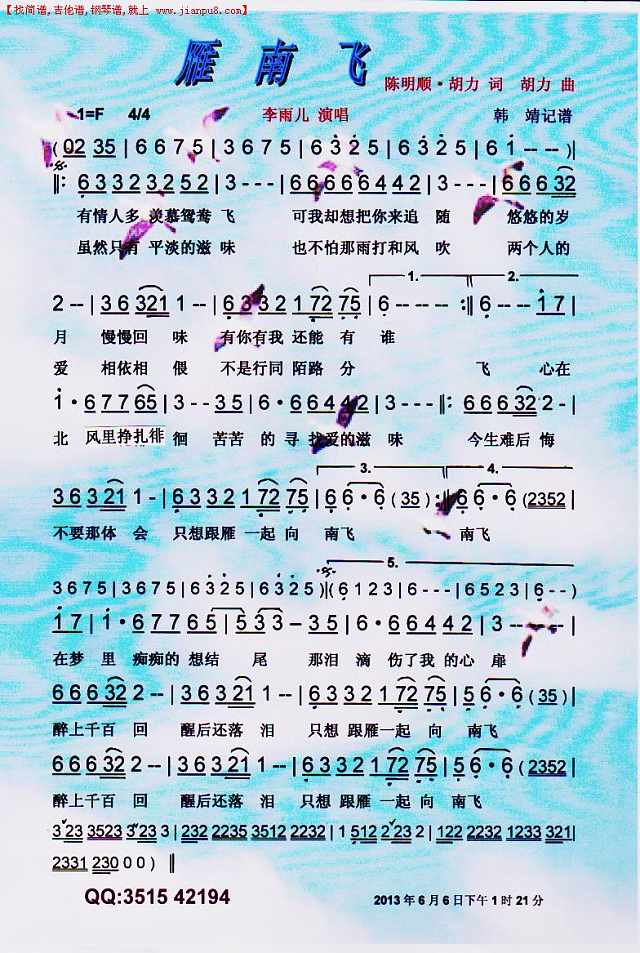 【找简谱,吉他谱,钢琴谱,就上 www.jianpu8.com】
雁 南 飞
陈明顺·胡力 词 胡力 曲
1=F 4/4 李雨儿 演唱 韩 靖记谱
( 02 35 | 6 6 7 5 | 3 6 7 5 | 6 3 2 5 | 6 3 2 5 | 6 i -- -- )|
‖: 6 3 3 2 3 2 5 2 | 3 - - - | 6 6 6 6 6 4 4 2 | 3 - - - | 6 6 6 32
有情人多 羡慕鸳鸯 飞 可我却想把你来追 随 悠悠的岁
虽然只有 平淡的滋 味 也不怕那雨打和风 吹 两个人的
2 -- | 3 6 321 1 -- | 6 3 3 2 1 72 75 | 6 -- -- -- :‖ 6 -- i 7 |
1. 2.
月 慢慢回 味 有你有我 还能 有 谁
爱 相依相 偎 不是行同 陌路 分 飞 心在
i · 6 7 7 65 | 3 -- 3 5 | 6 · 6 6 4 4 2 | 3 -- -- -- :‖: 6 6 6 32 2 -- |
北 风里挣扎徘 徊 苦苦 的 寻 找爱的滋 味 今生难后 悔
3. 4.
3 6 3 21 1 - | 6 3 3 2 1 72 75 | 6 6 · 6 (35) :‖ 6 6 · 6 (2352 |
不要那体 会 只想跟雁 一起 向 南飞 南飞
5.
3 6 7 5 | 3 6 7 5 | 6 3 2 5 | 6 3 2 5 )|( 6 1 2 3 | 6 - - - | 6 5 2 3 | 6 - - )
i 7 | i · 6 7 7 6 5 | 5 3 3 -- 3 5 | 6 · 6 6 4 4 2 | 3 -- -- -- |
在梦 里 痴痴的 想结 尾 那泪 滴 伤了我 的心 扉
6 6 6 32 2 -- | 3 6 3 21 1 -- | 6 3 3 2 1 72 75 | 5 6 · 6 (35) |
醉上千百 回 醒后还落 泪 只想 跟雁一起 向 南飞
6 6 6 32 2 -- | 3 6 3 21 1 -- | 6 3 3 2 1 72 75 | 5 6 · 6 (2352 |
醉上千百 回 醒后还落 泪 只想 跟雁 一起 向 南飞
3 23 3523 3 23 3 | 232 2235 3512 2232 | 1 512 2 23 2 | 122 2232 1233 321 |
2331 230 0 0 ) ‖
QQ:3515 42194
2013 年 6 月 6 日下午 1 时 21 分